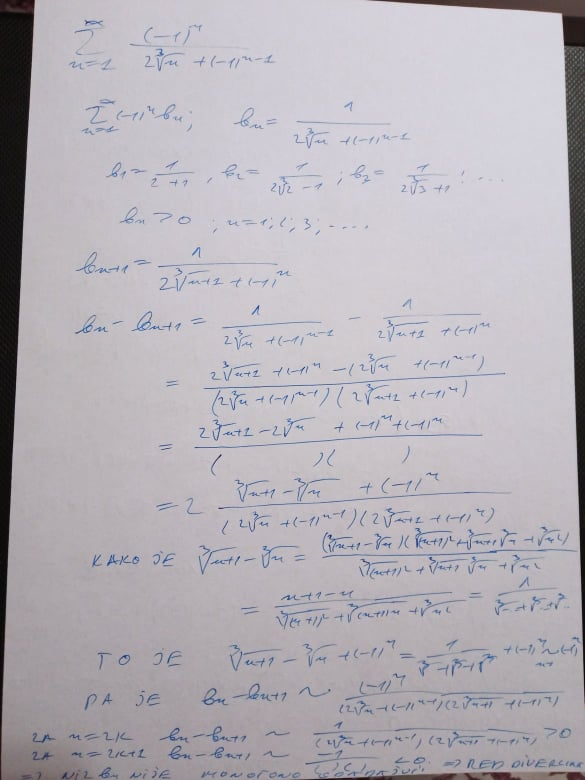 ∞
Σ (-1)^n / (2∛n + (-1)^{n-1})
n=1
∞
Σ (-1)^n bn ; bn = 1 / (2∛n + (-1)^{n-1})
n=1
b1 = 1/(2+1) , b2 = 1/(2∛2 - 1) ; b3 = 1/(2∛3 + 1) ; ...
bn > 0 ; n = 1; 2; 3; ....
bn+1 = 1 / (2∛(n+1) + (-1)^n)
bn - bn+1 = 1 / (2∛n + (-1)^{n-1}) - 1 / (2∛(n+1) + (-1)^n)
= (2∛(n+1) + (-1)^n - (2∛n + (-1)^{n-1})) / ((2∛n + (-1)^{n-1}) (2∛(n+1) + (-1)^n))
= (2∛(n+1) - 2∛n + (-1)^n + (-1)^n) / ( )( )
= 2 (∛(n+1) - ∛n + (-1)^n) / ((2∛n + (-1)^{n-1}) (2∛(n+1) + (-1)^n))
KAKO JE ∛(n+1) - ∛n = (∛(n+1) - ∛n)(∛(n+1)² + ∛(n+1) ∛n + ∛n²) / (∛(n+1)² + ∛(n+1) ∛n + ∛n²)
= (n+1-n) / (∛(n+1)² + ∛(n+1)n + ∛n²) = 1 / (∛ + ∛ + ∛)
TO JE ∛(n+1) - ∛n + (-1)^n = 1 / (∛ + ∛ + ∛) + (-1)^n ~ (-1)^n
PA JE bn - bn+1 ~ (-1)^n / ((2∛n + (-1)^{n-1}) (2∛(n+1) + (-1)^n))
ZA n=2k bn - bn+1 ~ 1 / ((2∛n + (-1)^{n-1}) (2∛(n+1) + (-1)^n)) > 0
ZA n=2k+1 bn - bn+1 ~ < 0 ⇒ RED DIVERGIRA
⇒ NIZ bn NIJE MONOTONO